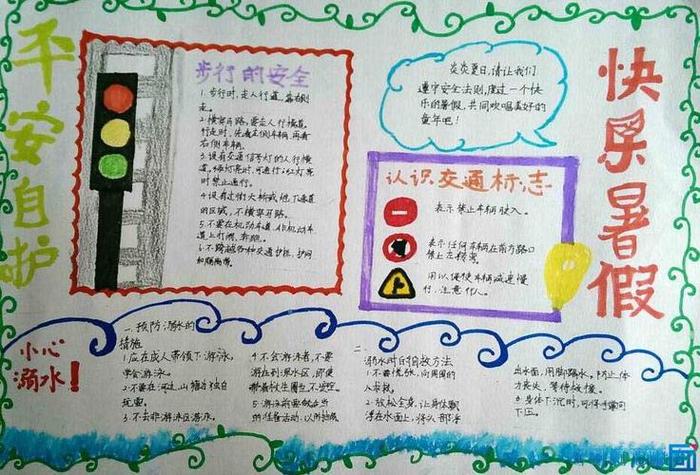 平安自护
快乐暑假
步行的安全
1.步行时,走人行道,靠右侧
走。
2.横穿马路,要走人行横道,
行走时,先看左侧车辆,再看
右侧车辆。
3.设有交通信号灯的人行横
道,绿灯亮时可通行,红灯亮
时禁止通行。
4.设有过街天桥或地下通道
的区域,不横穿马路。
5.不要在机动车道、非机动车
道上打闹、奔跑。
6.不跨越各种交通护栏、护网
和隔离带。
炎炎夏日,请让我们
遵守安全法则,度过一个快
乐的暑假,共同欢唱美好的
童年吧!
认识交通标志
表示禁止车辆驶入。
表示任何车辆在前方路口
禁止左转弯。
用以促使车辆减速慢
行,注意行人。
小心
溺水!
一.预防溺水的
措施
1.应在成人带领下游泳,
学会游泳。
2.不要在河边、山塘边独自
玩耍。
3.不去非游泳区游泳。
4.不会游泳者,不要
游到深水区,即使
带着救生圈也不安全。
5.游泳前要做适当
的准备活动,以防抽筋
二.
溺水时的自救方法
1.不要慌张,向周围的
人求救。
2.放松全身,让身体飘
浮在水面上,将头部浮
出水面,用脚踢水,防止体
力丧失,等待救援。
3.身体下沉时,可将手掌向
下压。